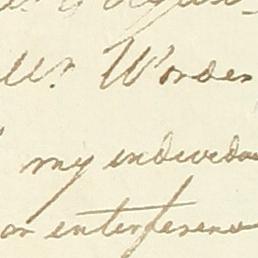 Mr. Worden
my individua
or interference